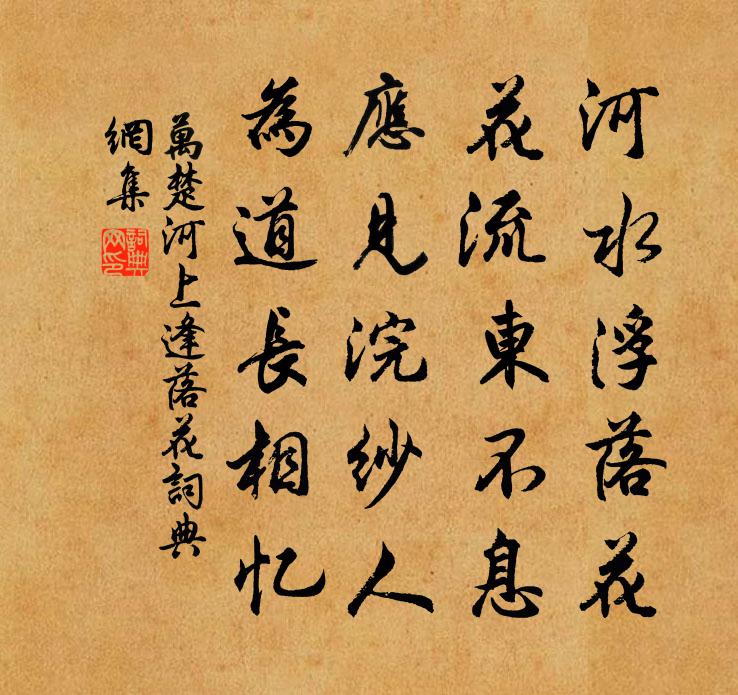 河水浮落花
花流東不息
應見浣紗人
為道長相忆
萬楚河上逢落花詞典
網集
詞典
网印